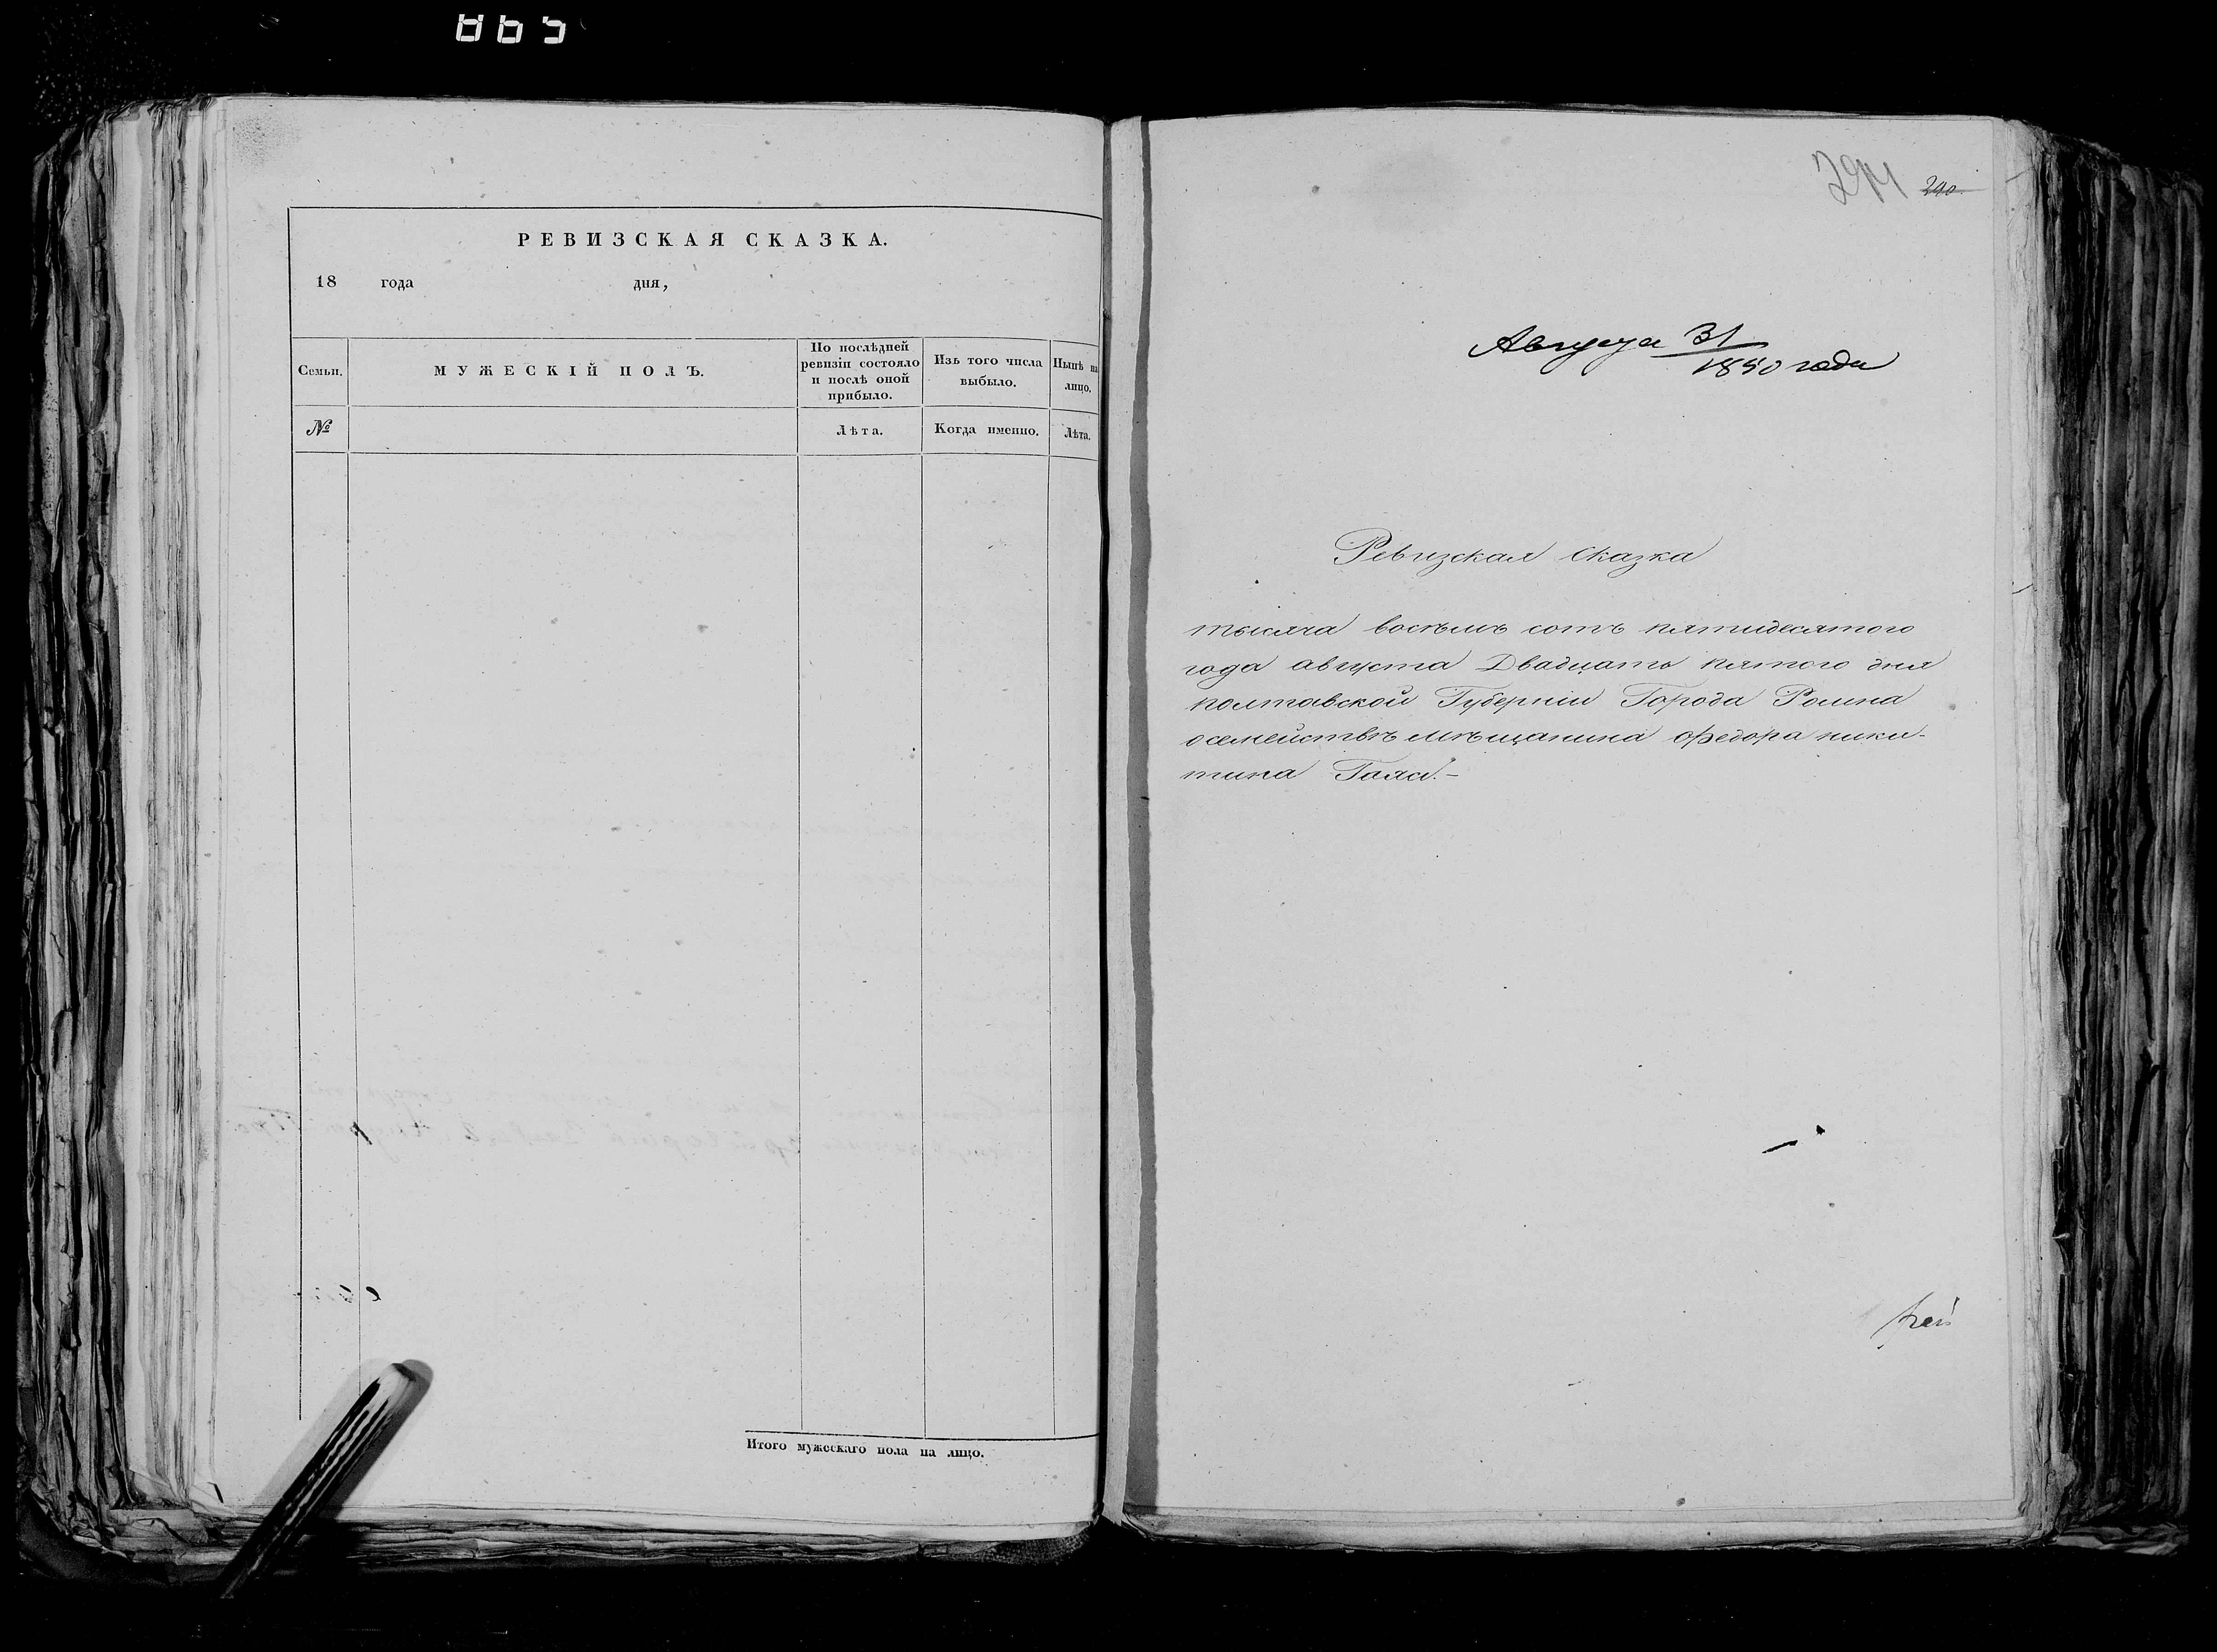 РЕВИЗСКАЯ СКАЗКА.
18 года дня,
Семьи.
МУЖЕСКІЙ ПОЛЪ.
По послѣдней
ревизіи состояло
и послѣ оной
прибыло.
Изъ того числа
выбыло.
Нынѣ на
лицо.
№
Лѣта.
Когда именно.
Лѣта.
Итого мужескаго пола на лицо.
290.
Августа 31
1850 года
Ревизская Сказка
тысяча восѣмъ сотъ пятидесятого
года августа Двадцать пятого дня
полтавской Губерніи Города Ромна
осемействѣ мѣщанина Федора ники-
тина